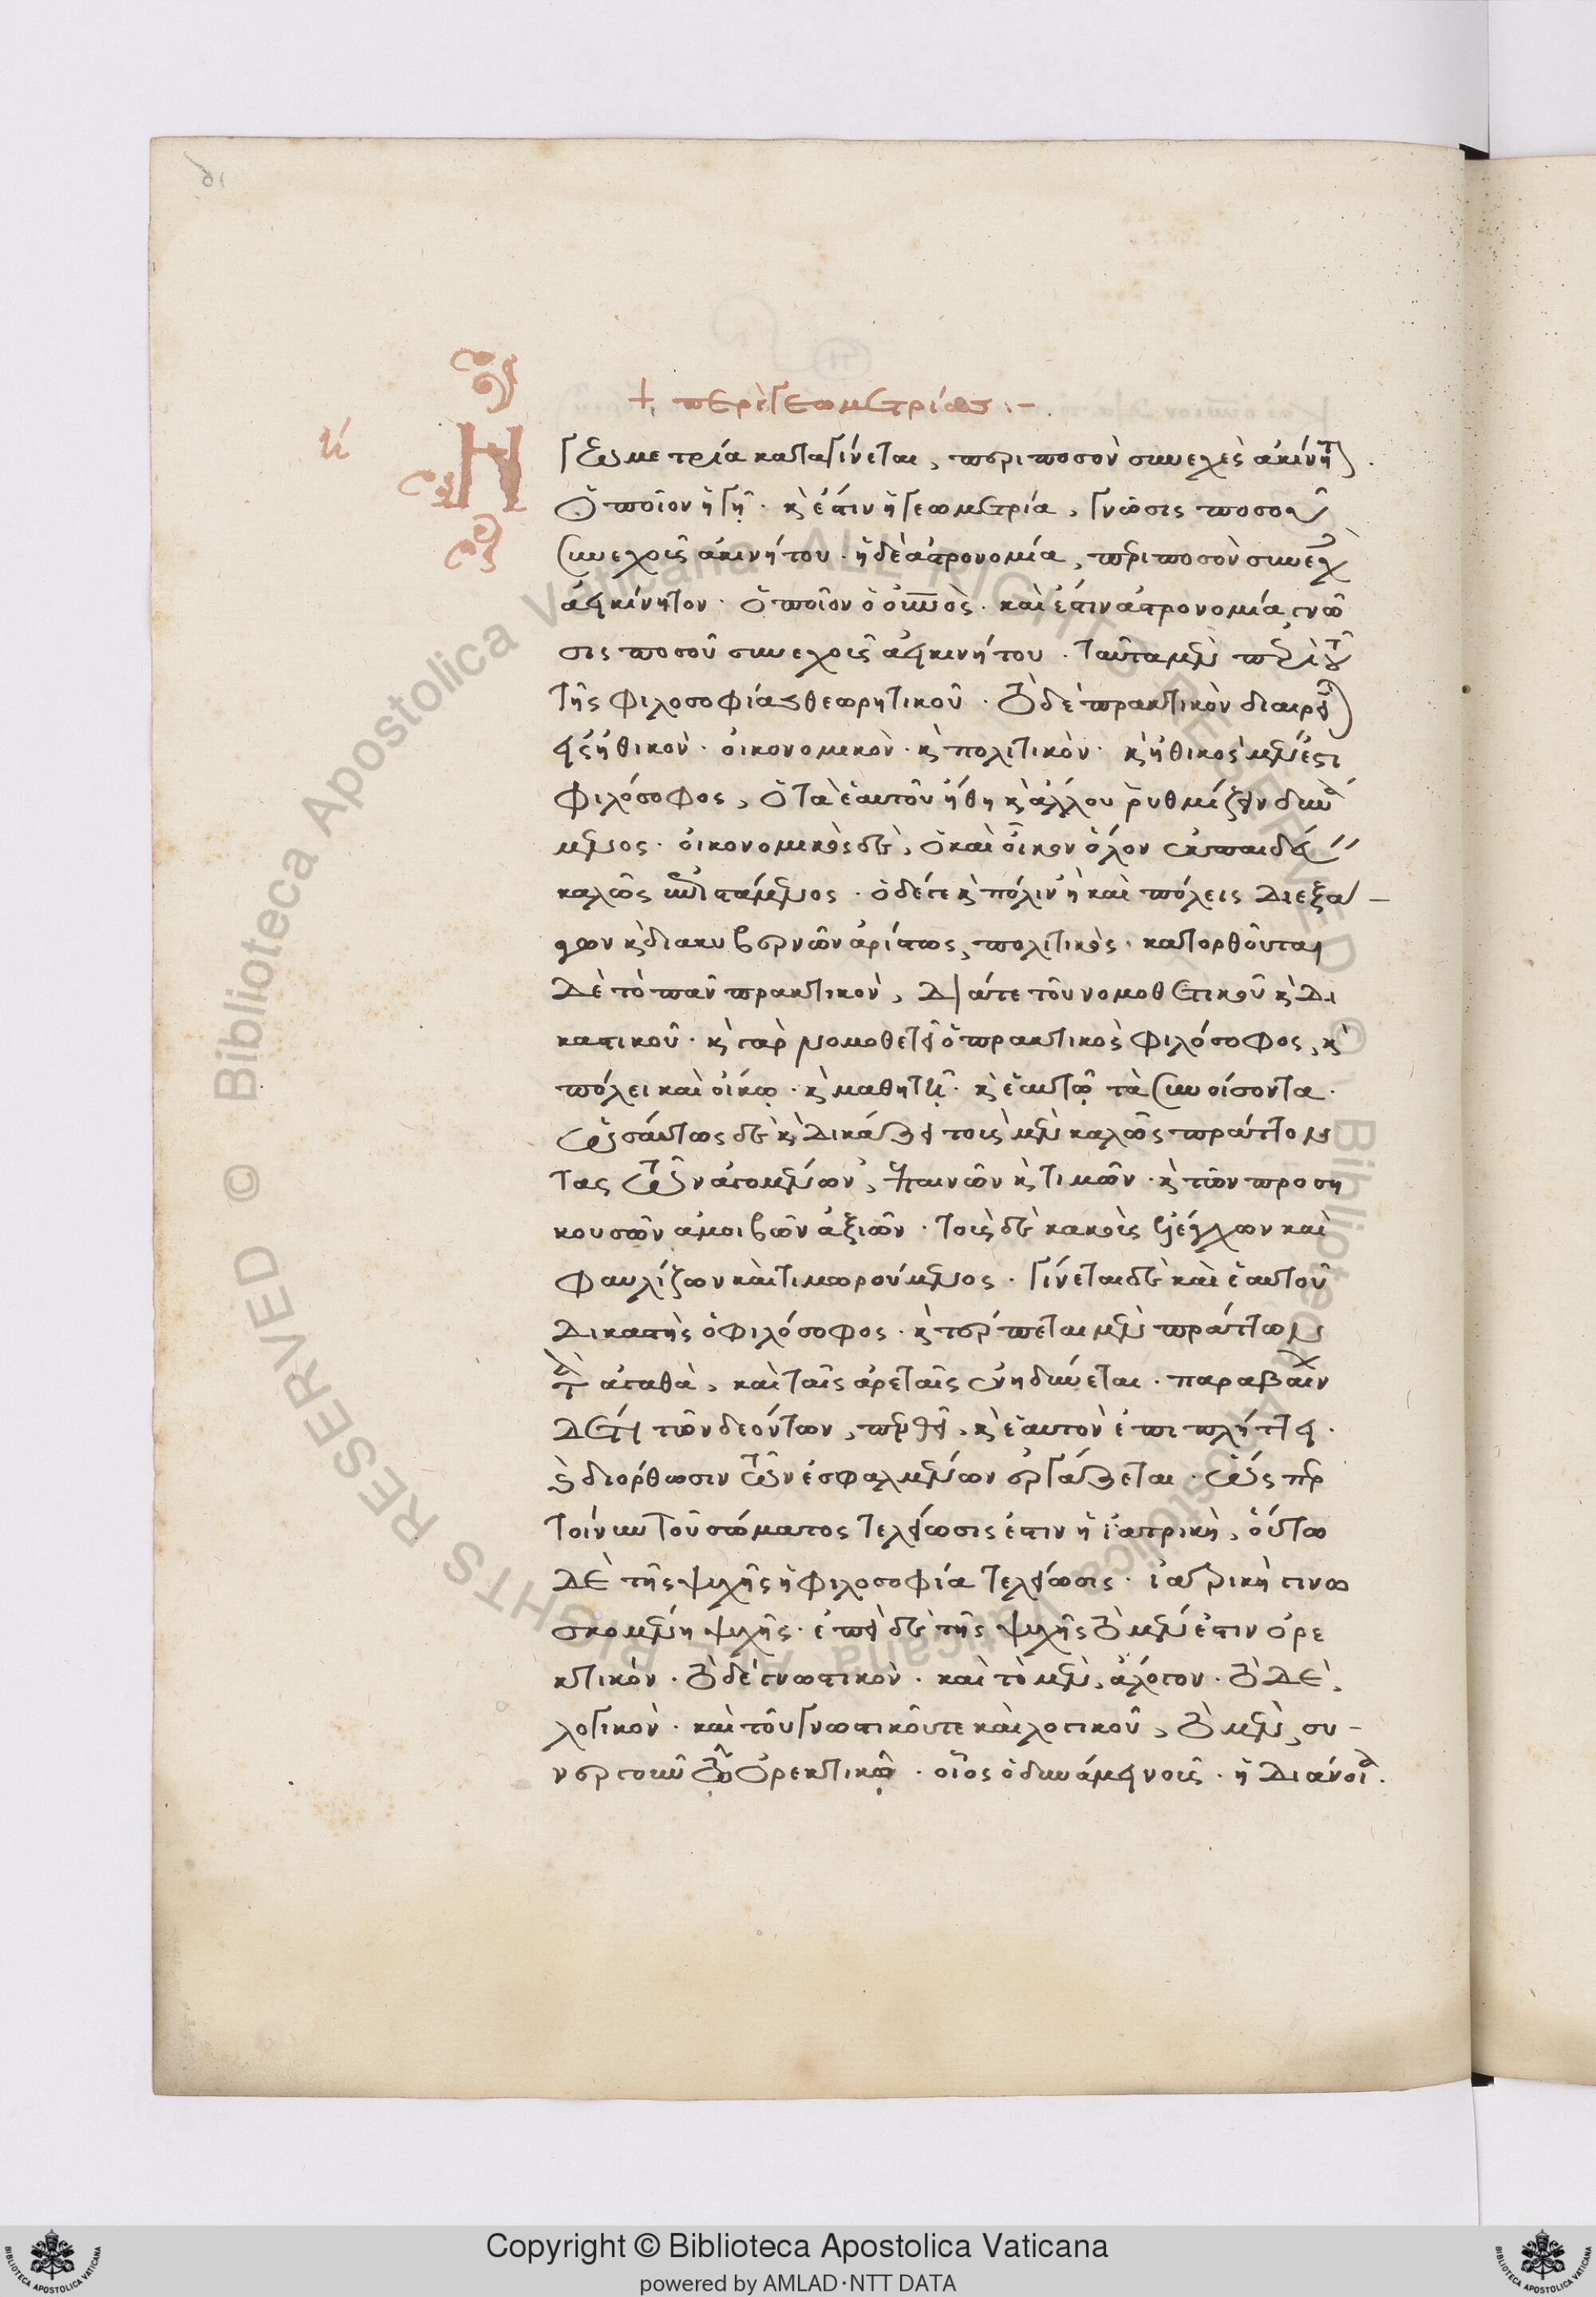 + περὶ γεωμετρίας :-
κ
Η γεωμετρία καταγίνεται, περι ποσὸν συνεχὲς ἀκίνητ
ὁποῖον ἡ γῆ. κ ἐστιν ἡ γεωμετρία, γνῶσις ποσοῦ
συνεχοῦς ἀκινήτου. ἡ δὲ ἀστρονομία, περι ποσὸν συνεχ
ἀεικίνητον. ὁποῖον ὁ οὐνὸς. καὶ ἐστιν ἀστρονομία γνῶ
σις ποσοῦ συνεχοῦς ἀεικινήτου. ταῦτα μὲν περὶ τοῦ
τῆς φιλοσοφίας θεωρητικοῦ. τὸ δὲ πρακτικὸν διαιρεῖ
εἰς ἠθικὸν. οἰκονομικὸν. κ πολιτικὸν. κ ἠθικὸς μὲν ἐστι
φιλόσοφος, ὁ τὰ ἑαυτοῦ ἤθη κ ἄλλου ῥυθμίζειν δυνά
μενος. οἰκονομικὸς δὲ, ὁ καὶ οἶκον ὅλον ἐκπαιδεύειν
καλῶς ἐπιστάμενος. ὁ δέ γε κ πόλιν ἢ καὶ πόλεις διεξά-
γων κ διακυβερνῶν ἀρίστως, πολιτικὸς. κατορθοῦται
δὲ τὸ πᾶν πρακτικὸν, διά τε τοῦ νομοθετικοῦ κ δι
καστικοῦ. κ γαρ νομοθετεῖ ὁ πρακτικὸς φιλόσοφος, κ
πόλει καὶ οἴκῳ. κ μαθητῇ. κ ἑαυτῷ τὰ συνοίσοντα.
ὡσαύτως δὲ κ δικάζει τοὺς μὲν καλῶς πράττον
τας τῶν ἀγομένων, ἐπαινῶν κ τιμῶν. κ τῶν προση
κουσῶν ἀμοιβῶν ἀξιῶν. τοὺς δὲ κακοὺς ἐλέγχων καὶ
φαυλίζων καὶ τιμωρούμενος. γίνεται δὲ καὶ ἑαυτοῦ
δικαστὴς ὁ φιλόσοφος. κ τέρπεται μὲν πράττων
τὰ ἀγαθὰ, καὶ ταῖς ἀρεταῖς ἐνηδύνεται. παραβαίν
δέ τι τῶν δεόντων, πενθεῖ, κ ἑαυτὸν ἐπιπλήττει.
κ διόρθωσιν τῶν ἐσφαλμένων ἐργάζεται. ὥσπερ
τοίνυν τοῦ σώματος τελείωσις ἐστιν ἡ ἰατρικὴ, οὕτω
δὲ τῆς ψυχῆς ἡ φιλοσοφία τελείωσις. ἰατρικὴ γινω
σκομένη ψυχῆς. ἐπεὶ δὲ τῆς ψυχῆς τὸ μὲν ἐστιν ὀρε
κτικόν. τὸ δὲ γνωστικὸν. καὶ τὸ μὲν, ἄλογον. τὸ δὲ,
λογικὸν. καὶ τοῦ γνωστικοῦ τε καὶ λογικοῦ, τὸ μὲν, συ-
νεργοῦν τῷ ὀρεκτικῷ. οἷος ὁ δυνάμει νοῦς. ἡ διάνοια.